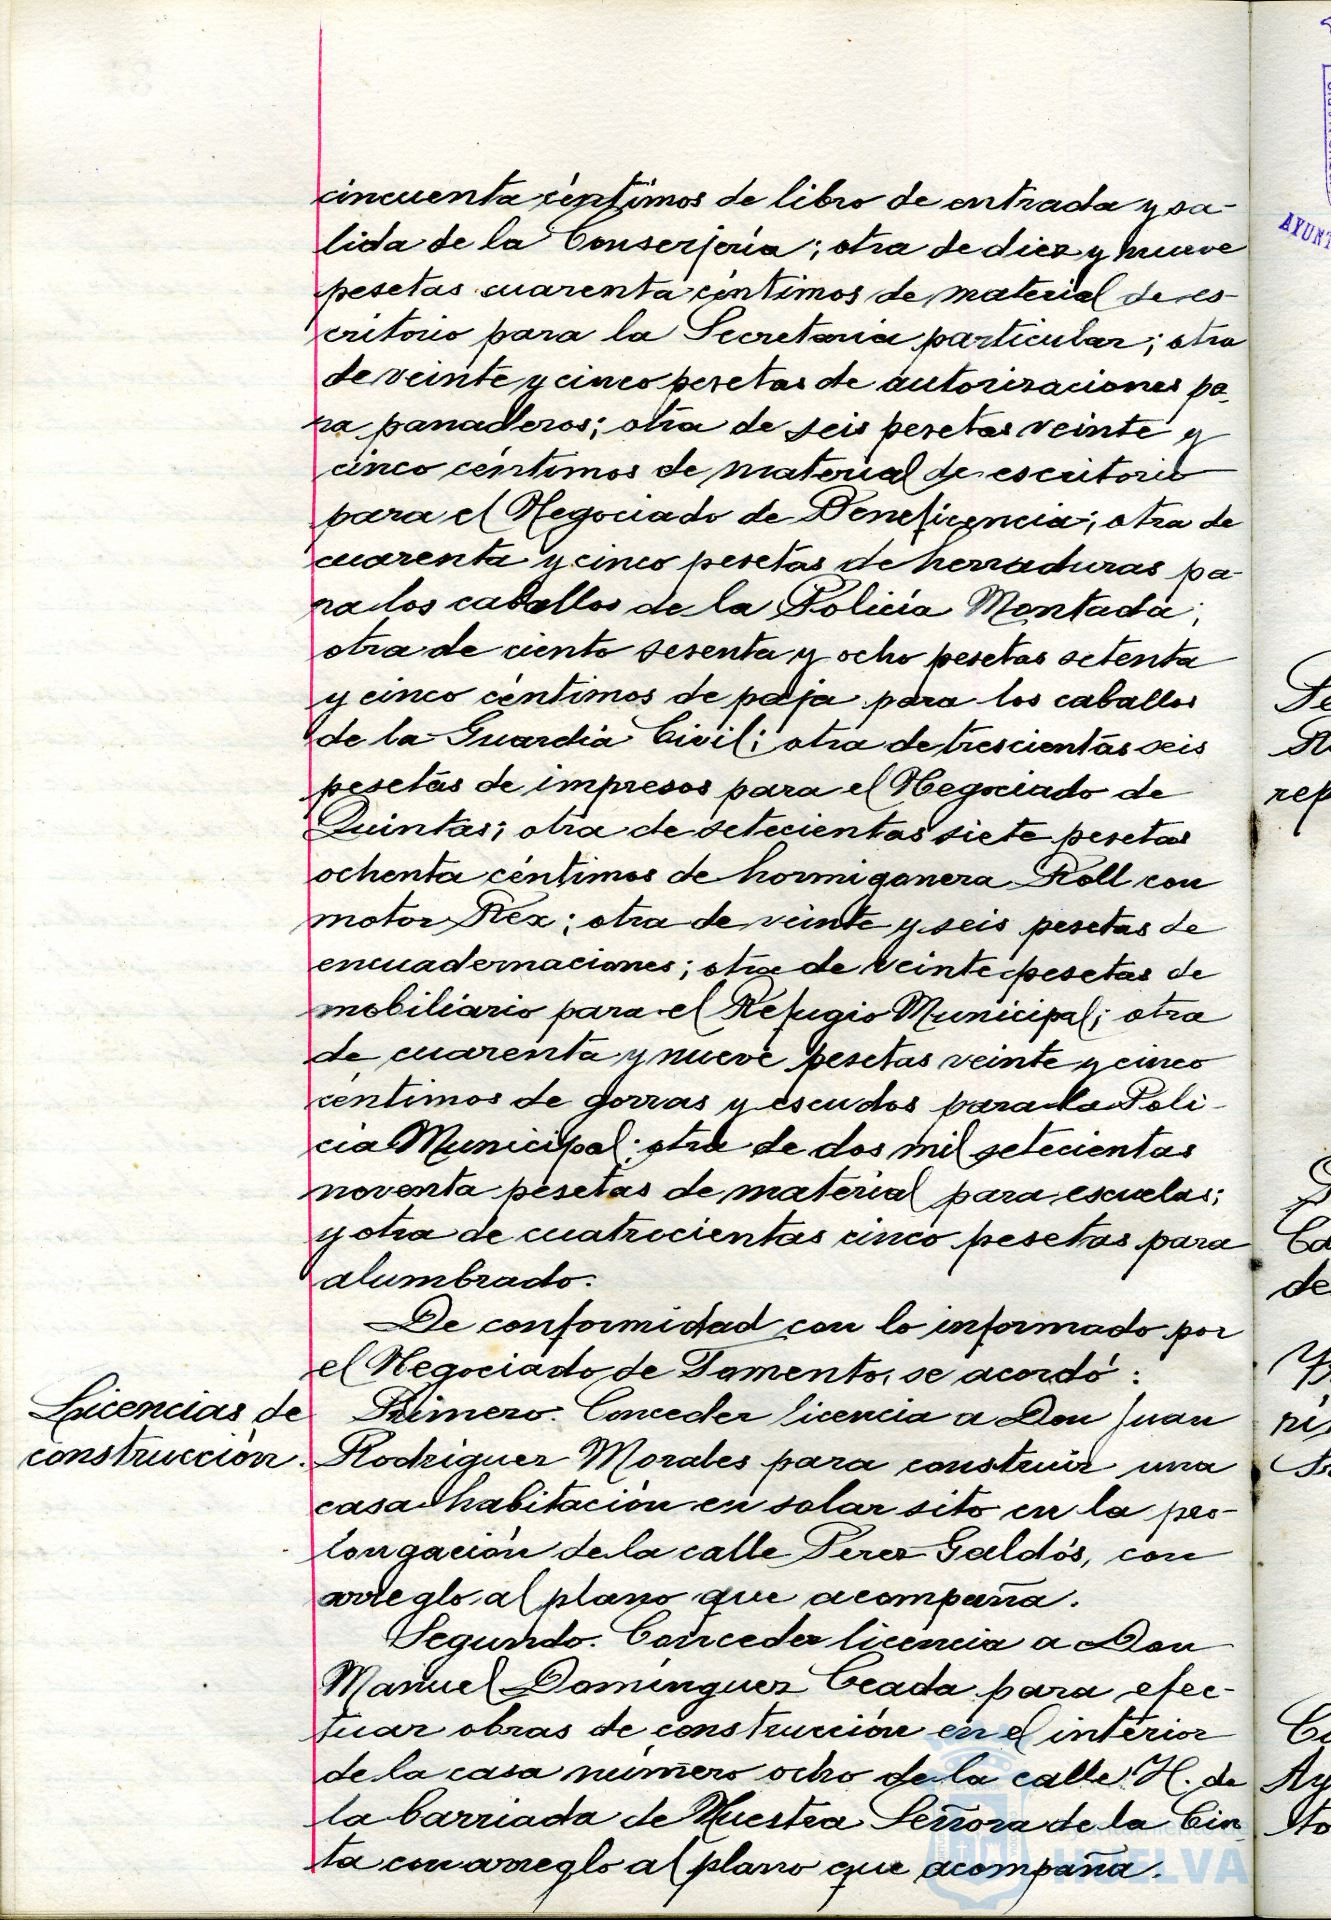 cincuenta céntimos de libro de entrada y sa-
lida de la Conserjería; otra de diez y nueve
pesetas cuarenta céntimos de material de es-
critorio para la Secretaría particular; otra
de veinte y cinco pesetas de autorizaciones pa-
ra panaderos; otra de seis pesetas veinte y
cinco céntimos de material de escritorio
para el Negociado de Beneficencia; otra de
cuarenta y cinco pesetas de herraduras pa-
ra los caballos de la Policía Montada;
otra de ciento sesenta y ocho pesetas setenta
y cinco céntimos de paja para los caballos
de la Guardia Civil; otra de trescientas seis
pesetas de impresos para el Negociado de
Quintas; otra de setecientas siete pesetas
ochenta céntimos de hormigonera Roll con
motor Rex; otra de veinte y seis pesetas de
encuadernaciones; otra de veinte pesetas de
mobiliario para el Refugio Municipal; otra
de cuarenta y nueve pesetas veinte y cinco
céntimos de gorras y escudos para la Poli-
cía Municipal; otra de dos mil setecientas
noventa pesetas de material para escuelas;
y otra de cuatrocientas cinco pesetas para
alumbrado.
De conformidad con lo informado por
el Negociado de Fomento, se acordó:
Licencias de
construcción.
Primero. Conceder licencia a Don Juan
Rodríguez Morales para construir una
casa habitación en solar sito en la pro-
longación de la calle Perez Galdós, con
arreglo al plano que acompaña.
Segundo. Conceder licencia a Don
Manuel Domínguez Ceada para efec-
tuar obras de construcción en el interior
de la casa número ocho de la calle H. de
la barriada de Nuestra Señora de la Cin-
ta con arreglo al plano que acompaña.
HUELVA